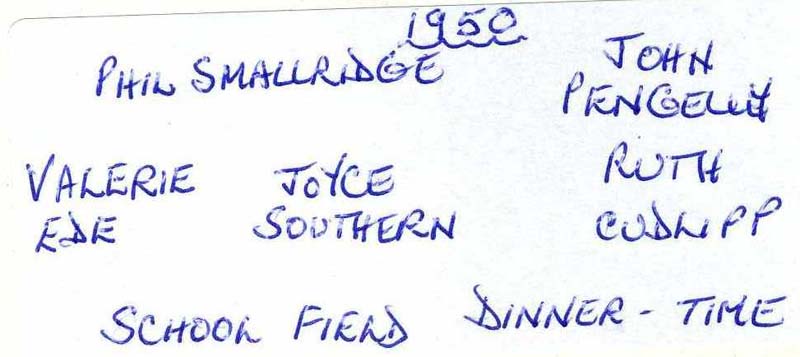 1950
PHIL SMALLRIDGE JOHN
PENGELLY
VALERIE JOYCE RUTH
EDE SOUTHERN CUDLIPP
SCHOOL FIELD DINNER - TIME